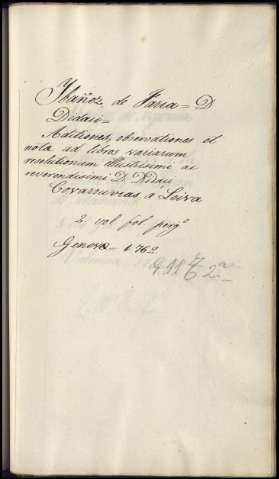 Ybañez de Faria = D
Didaci =
Aditiones, observationes et
nota ad libros variarum
resolutionum illustrisimi ac
reverendisimi D. Didaci
Covarruvias á Leiva
2 vol fol pergº
Genova - 1762